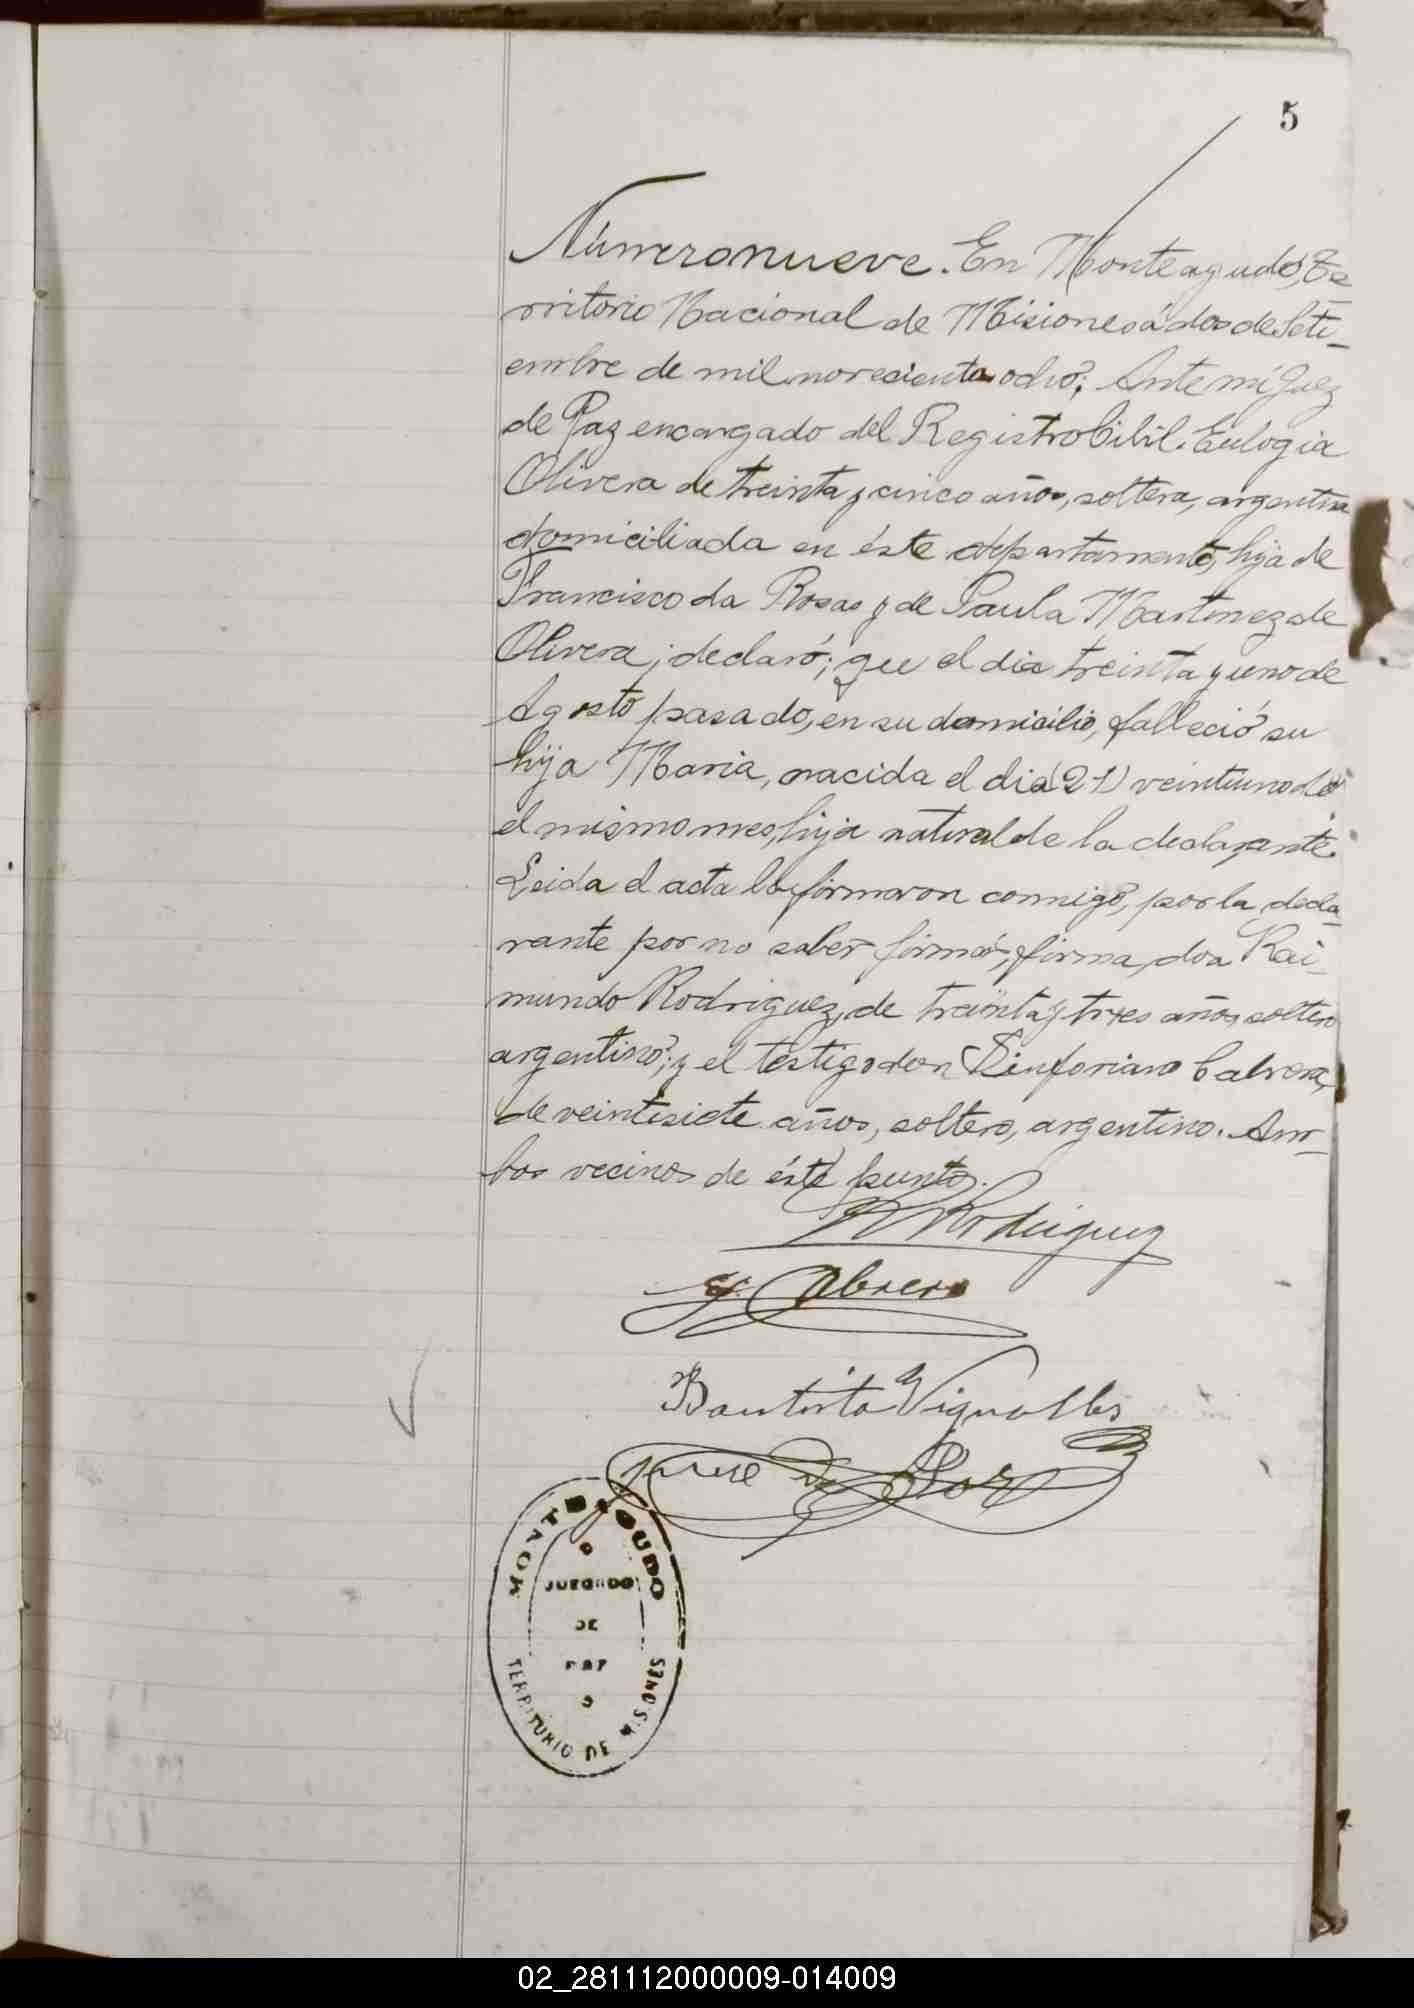 5
Número nueve. En Monteagudo, Te-
rritorio Nacional de Misiones á dos de Seti-
embre de mil novecientos ocho; Ante mí Juez
de Paz encargado del Registro Cibil. Eulogia
Olivera de treinta y cinco años, soltera, argentina
domiciliada en éste departamento, hija de
Francisco da Rosas y de Paula Martinez de
Olivera; declaró; que el dia treinta y uno de
Agosto pasado, en su domicilio, falleció su
hija Maria, nacida el dia (21) veintiuno de
el mismo mes, hija natural de la declarante.
Leida el acta la firmaron conmigo, por la decla-
rante por no saber firmar, firma, don Rai-
mundo Rodriguez, de treinta y tres años, soltero
argentino; y el testigo don Sinforiano Cabrera,
de veintisiete años, soltero, argentino. Am-
bos vecinos de éste punto.
R Rodriguez
S. Cabrera
Bautista Vignolles
Juez de Paz
MONTEAGUDO
JUZGADO
DE
PAZ
TERRITORIO DE MISIONES
02_281112000009-014009